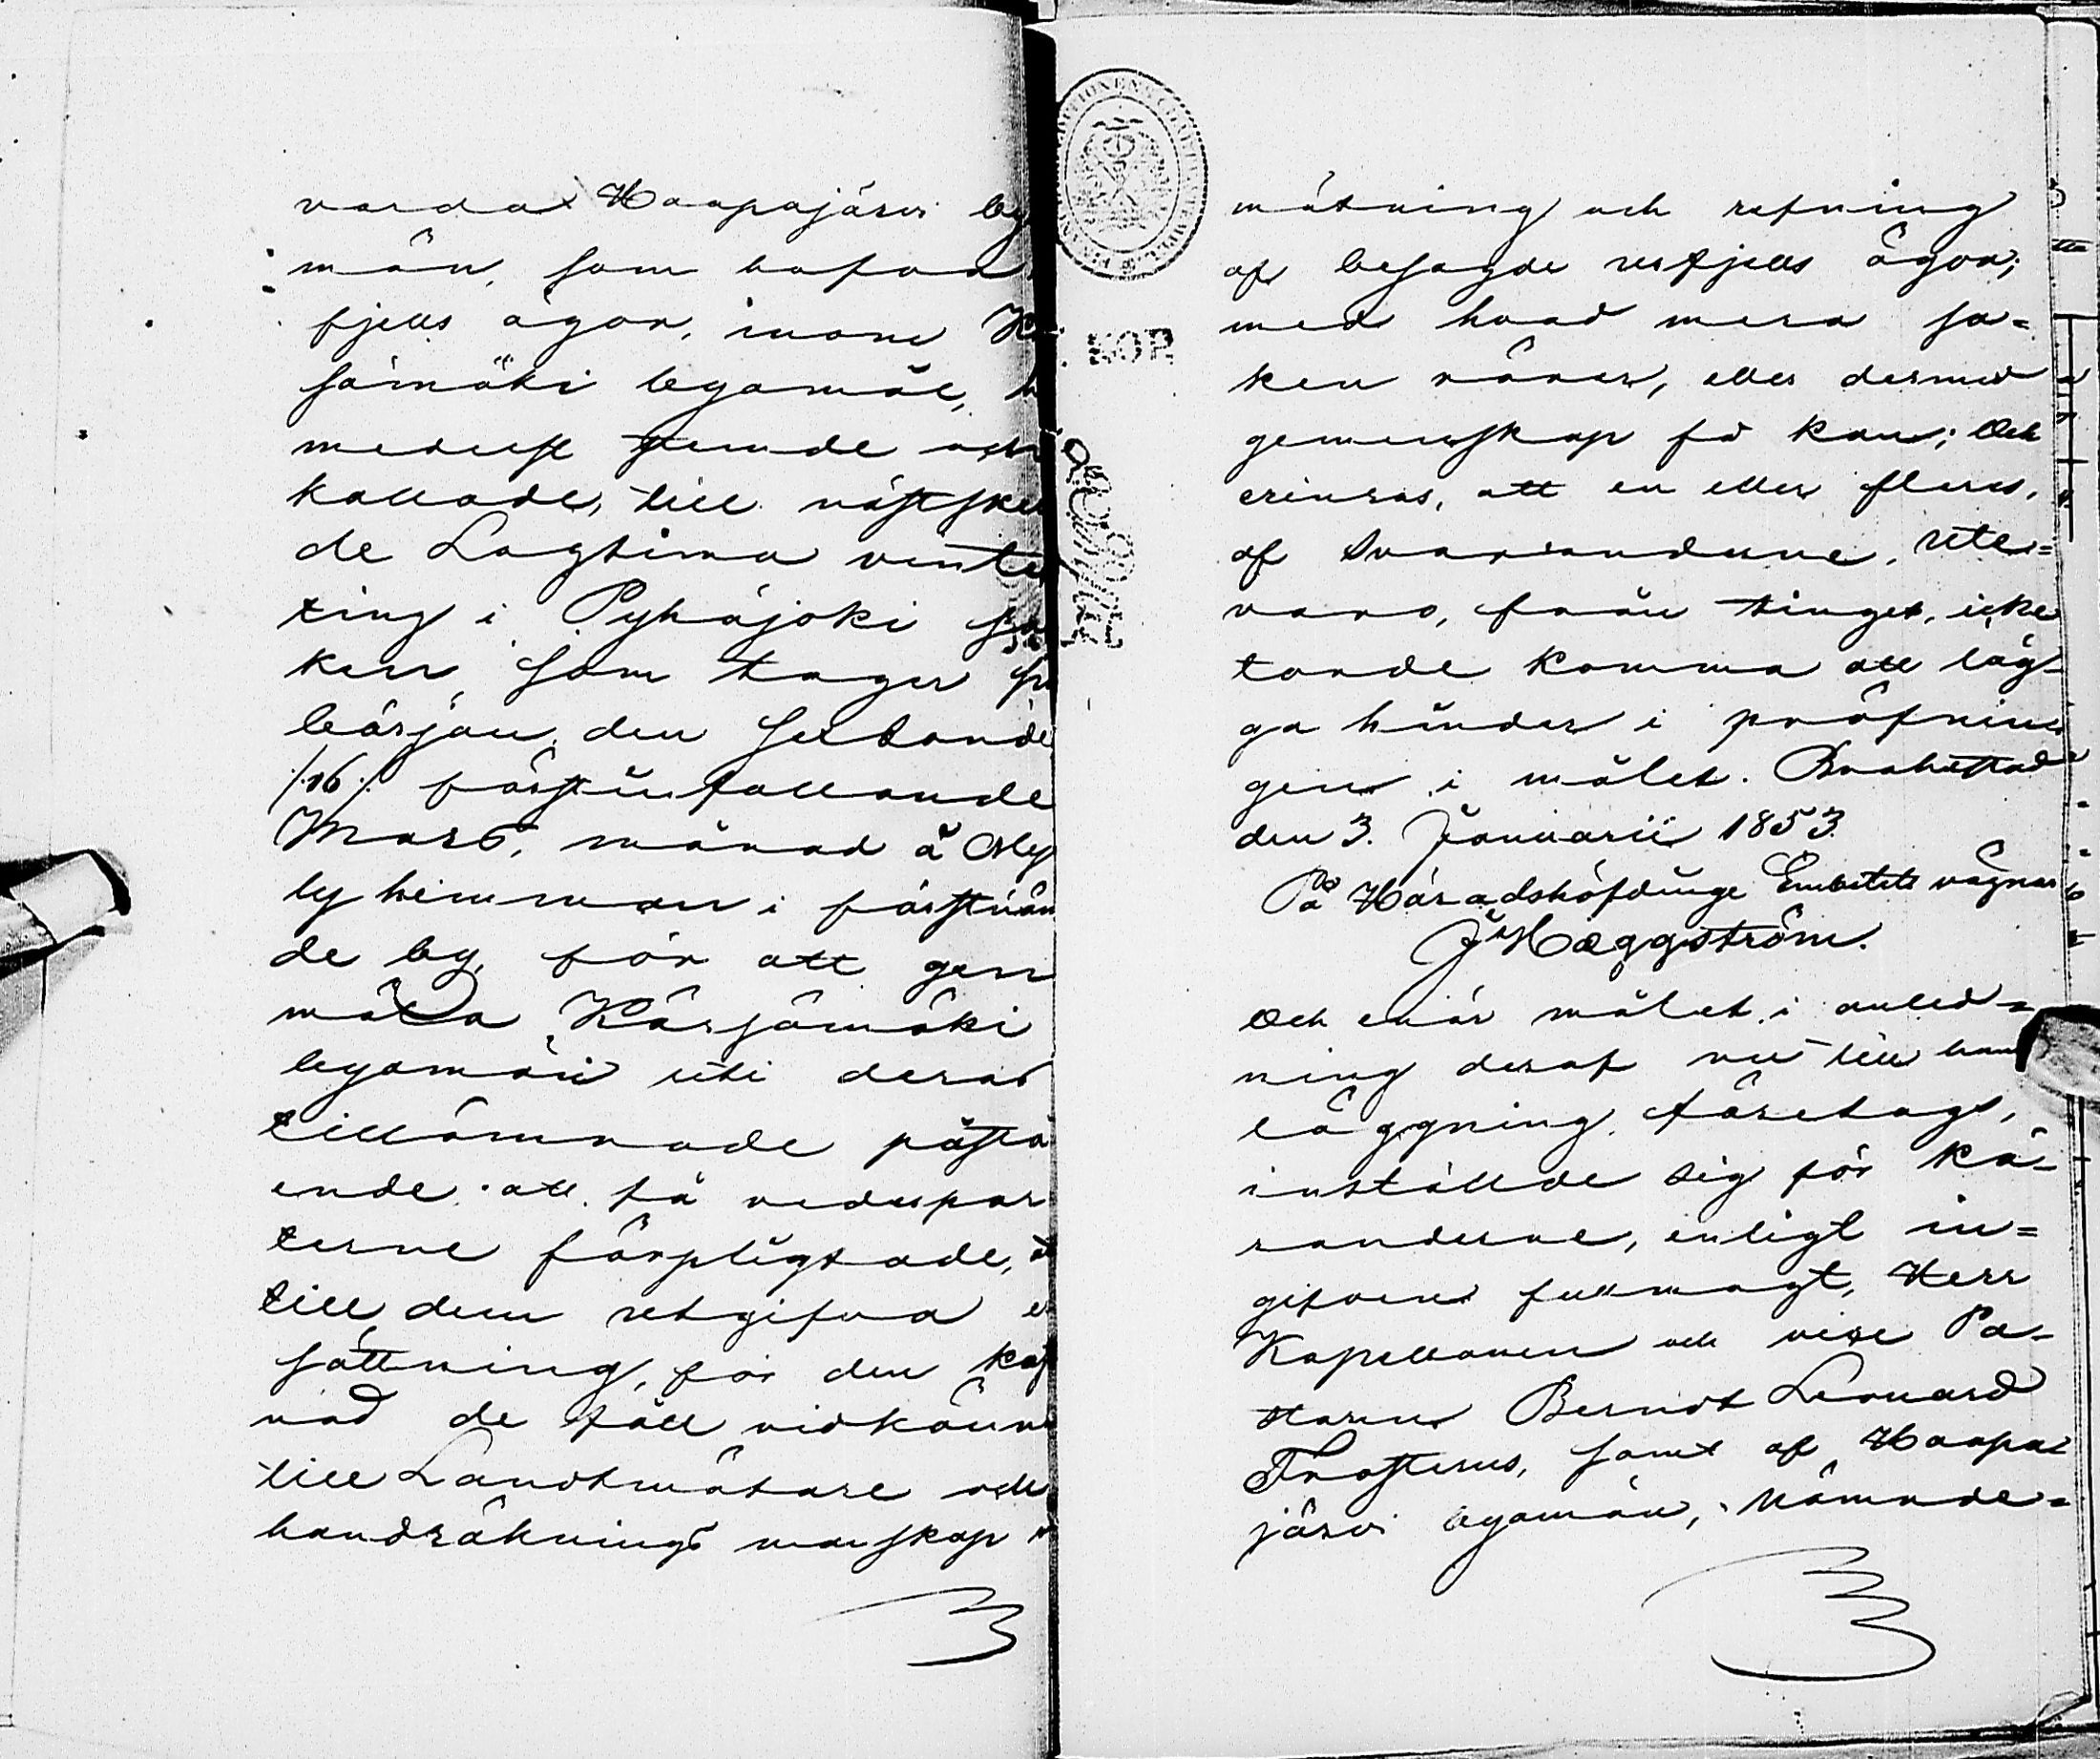 varda Haapajärvi by
män, som hafva
fjells ägor, inom K
sämäki byamål, 
medelst stemde och
kallade, till nästskel
de Lagtima vinte
ting i Pyhäjoki so
ken, som tager sin
början den sextonde
/:16:/ förstinfallande
Mars, månad å Oly
by hemman i förstnäm
de by, för att gen
mäla Kärsämäki
byamän uti deras
tillämnade påstå
ende att få vederpar
terne förpligtade, a
till dem utgifva er
sättning, för den kost
nad de fått vidkänn
till Landtmätare och
handräknings manskap v
mätning och refning
af besagde utfjells ägor;
med hvad mera sa=
ken rörer, eller dermed
gemenskap få kan; Och
erinras, att en eller fleres,
af Svaranderne, ute=
varo, från tinget, icke
torde komma att läg-
ga hinder i pröfnin
gen i målet. Brahestad
den 3. Januarii 1853.
På Häradshöfdinge Embetets vägnar
J Hæggström.
Och enär målet i anled=
ning deraf nu till hand
läggning företogs,
inställde sig för Kä-
randerne, enligt in=
gifven fullmagt, Herr
Kapellanen och vice Pa-
storn Berndt Leonard
Frosterus, samt af Haapa=
järvi byamän, Nämnde=
KOP.